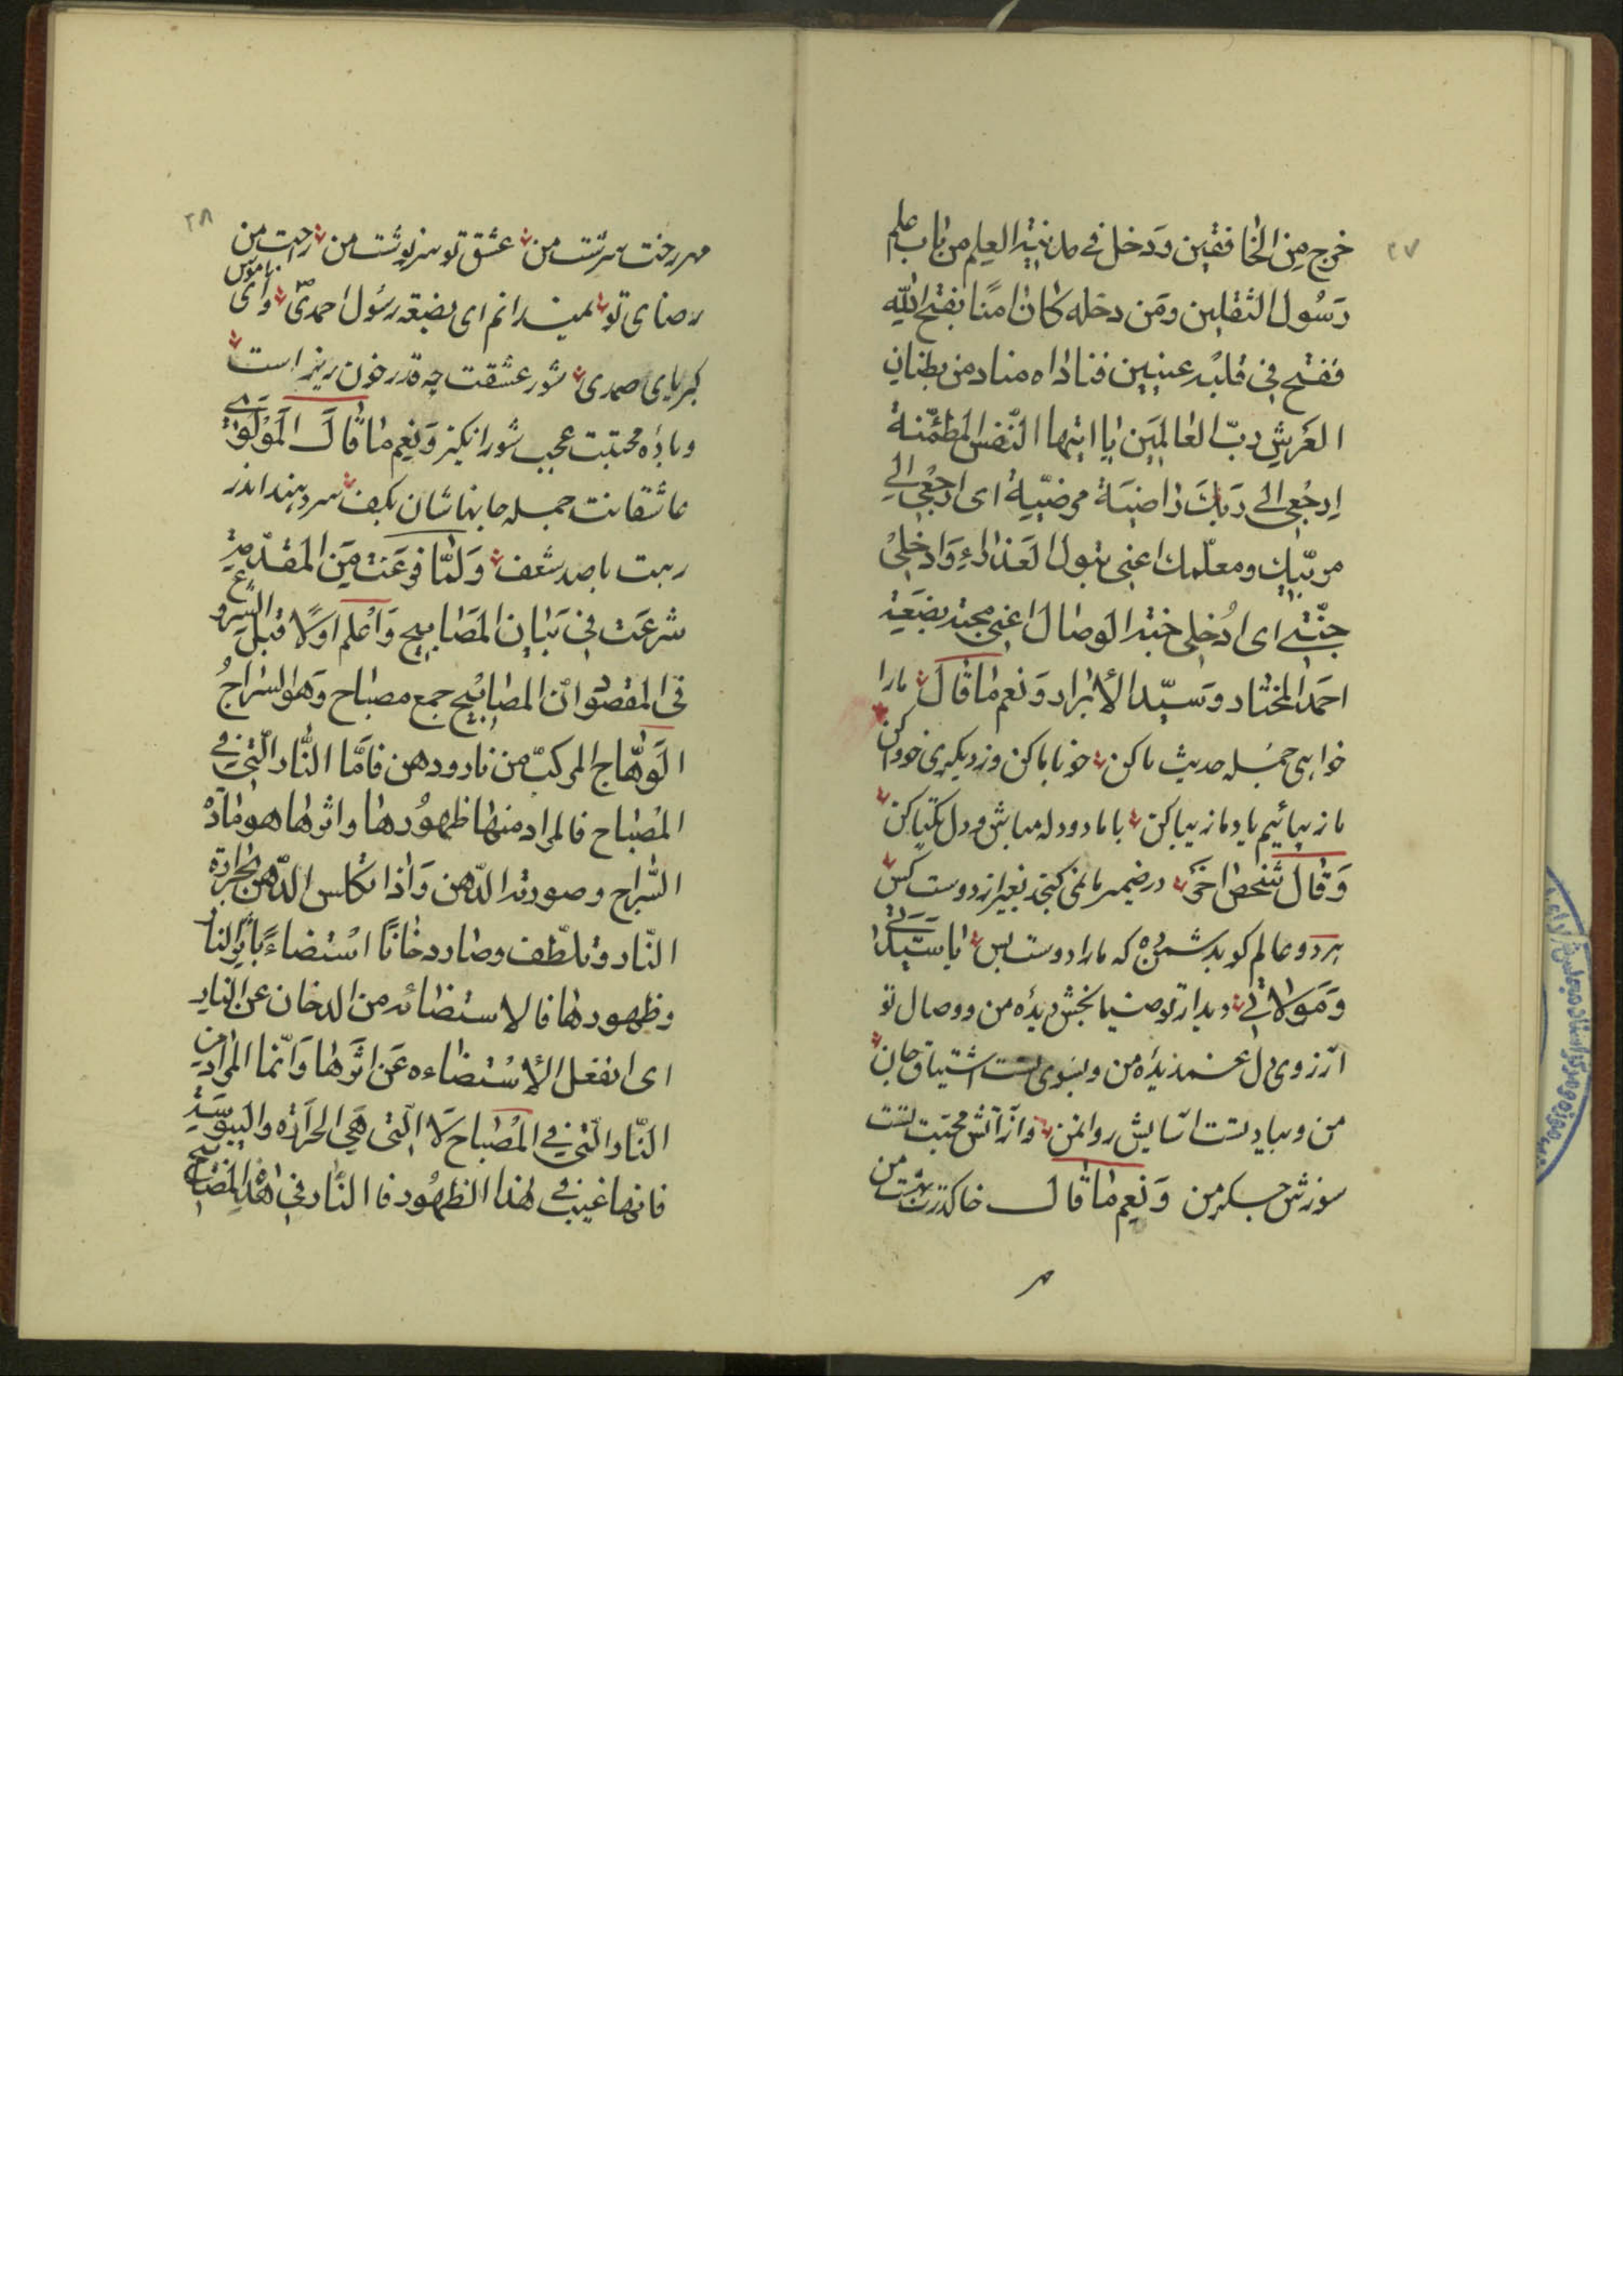 ٢٧
خرج من الخافقين و دخل في مدينة العلم من باب علم
رَسُول الثقلين ومَن دخله كان امنًا بفتح الله
ففتح في قلبه عينين فناداه مناد من بطنان
العَرش ربّ العالمين يا ايتها النّفس المطمّئنة
اِرجُعي الى ربك راضيَة مرضيّة اى ارجُعي الى
مربّيك ومعلّمك اعني بتول العَذراء وَادخلي
جنّتي اى اُدخلي جنة الوصال اعني محبة بضعَة
احمَد المختار وسَيّد الأبرار وَنعم ما قال مارا
خواهى جمله حديث ما كن خو با ما كن وز ديكرى خو واكن
ما زيبائيم ياد ما زيبا كن با ما دو دله مباش و دل يكتا كن
وَقال شخص اخَر در ضمير ما نمى كنجد بغير از دوست كس
هر دو عالم كو بدشمن ده كه ما را دوست بس يا سيّدتي
وَمَولاتي ديدار تو ضيا بخش ديده من و وصال تو
آرزوى دل غمديده من و بسوى تست اشتياق جان
من و بياد تست آسايش روان من و از آتش محبّت تست
سوزش جگر من وَنعم ما قال خاك درت بهشت من
مهر
٢٨
مهر رخت سرشت من عشق تو سرنوشت من راحت من
رضاى تو نميدانم اى بضعه رسُول احمدىّ واى ناموس
كبرياى صمدى شور عشقت چه قدر خون ريز است
وباده محبّتت عجب شور انگيز وَنعم ما قال المَولوي
عاشقانت جمله جانهاشان بكف سر دهند اندر
رهت با صد شعف وَلمّا فرغت مِن المقدّمة
شرعَت في بَيان المَصَابيح وَاعلم اولًا قبل الشروع
في المقصود انّ المصابيح جمع مصباح وَهو السّراجُ
الوَهّاج المركبّ من نار ودهن فامّا النّار الّتي في
المصباح فالمراد منها ظهورها واثرها هو مادّة
السّراج وصورته الدّهن وَاذا تكلس الدّهن بحرارة
النّار وتلطّف وصار دخانًا استضاءً بالنار
وظهورها فالاستضائه من الدخان عن النار
اى انفعل الأستضاءه عَن اثرها وَانّما المراد من
النّار الّتي في المصباح لا الّتي هي الحرارَة واليبوسَة
فانها غيّبت في هذا الظهُور فالنّار في هذا المصباح